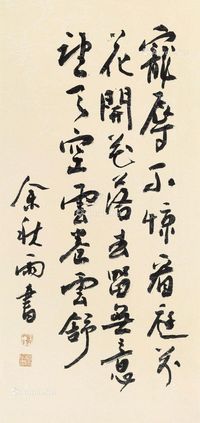 寵辱不惊看庭前
花開花落去留無意
望天空雲卷雲舒
余秋雨書